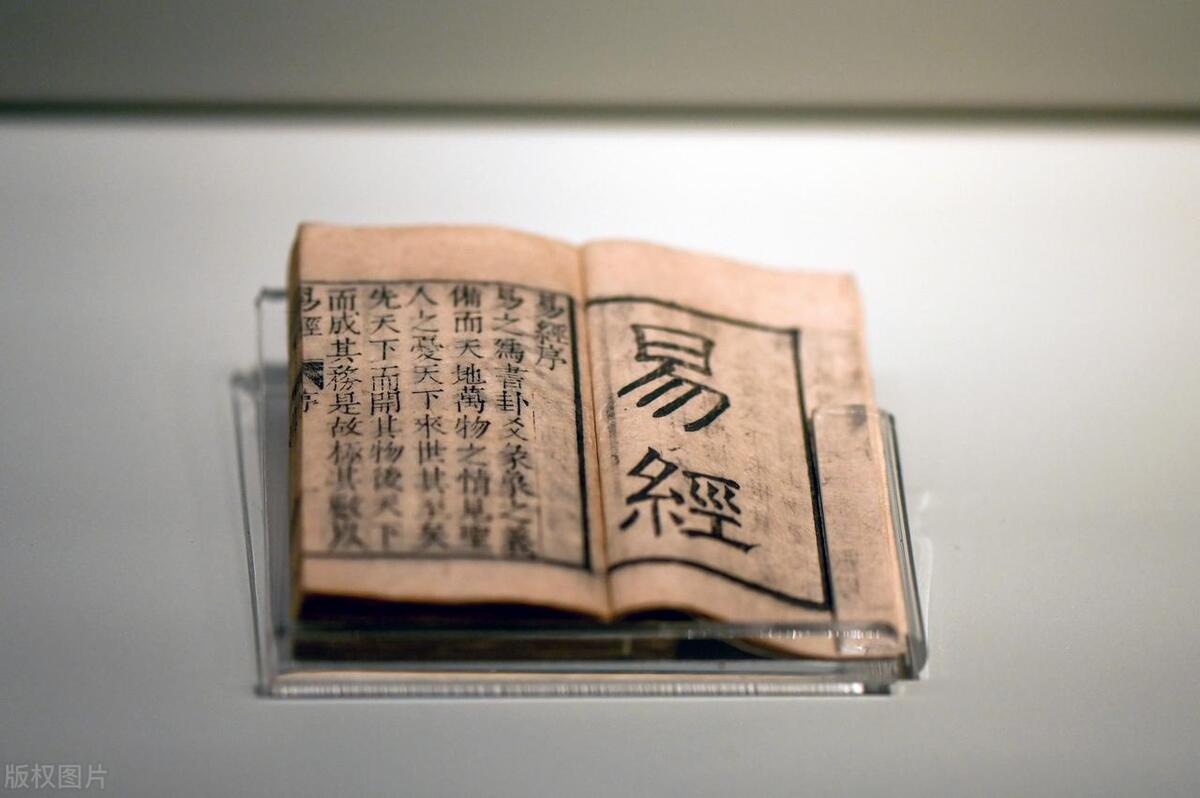 易經
易經序
易之爲書卦爻彖象之義
備而天地萬物之情見聖
人之憂天下來世其至矣
先天下而開其物後天下
而成其務是故極其數以
易經 序
版权图片